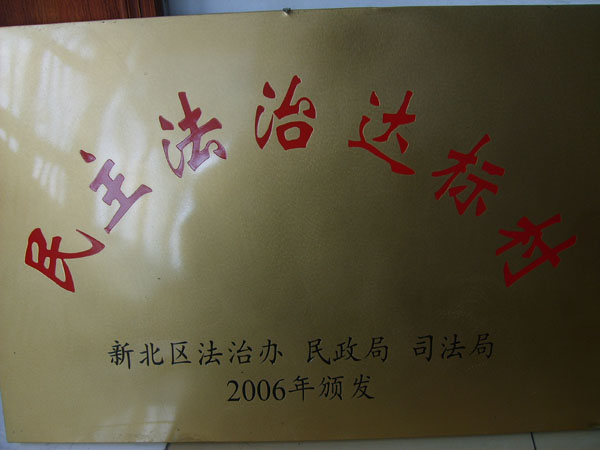 民主法治达标村
新北区法治办 民政局 司法局
2006年颁发